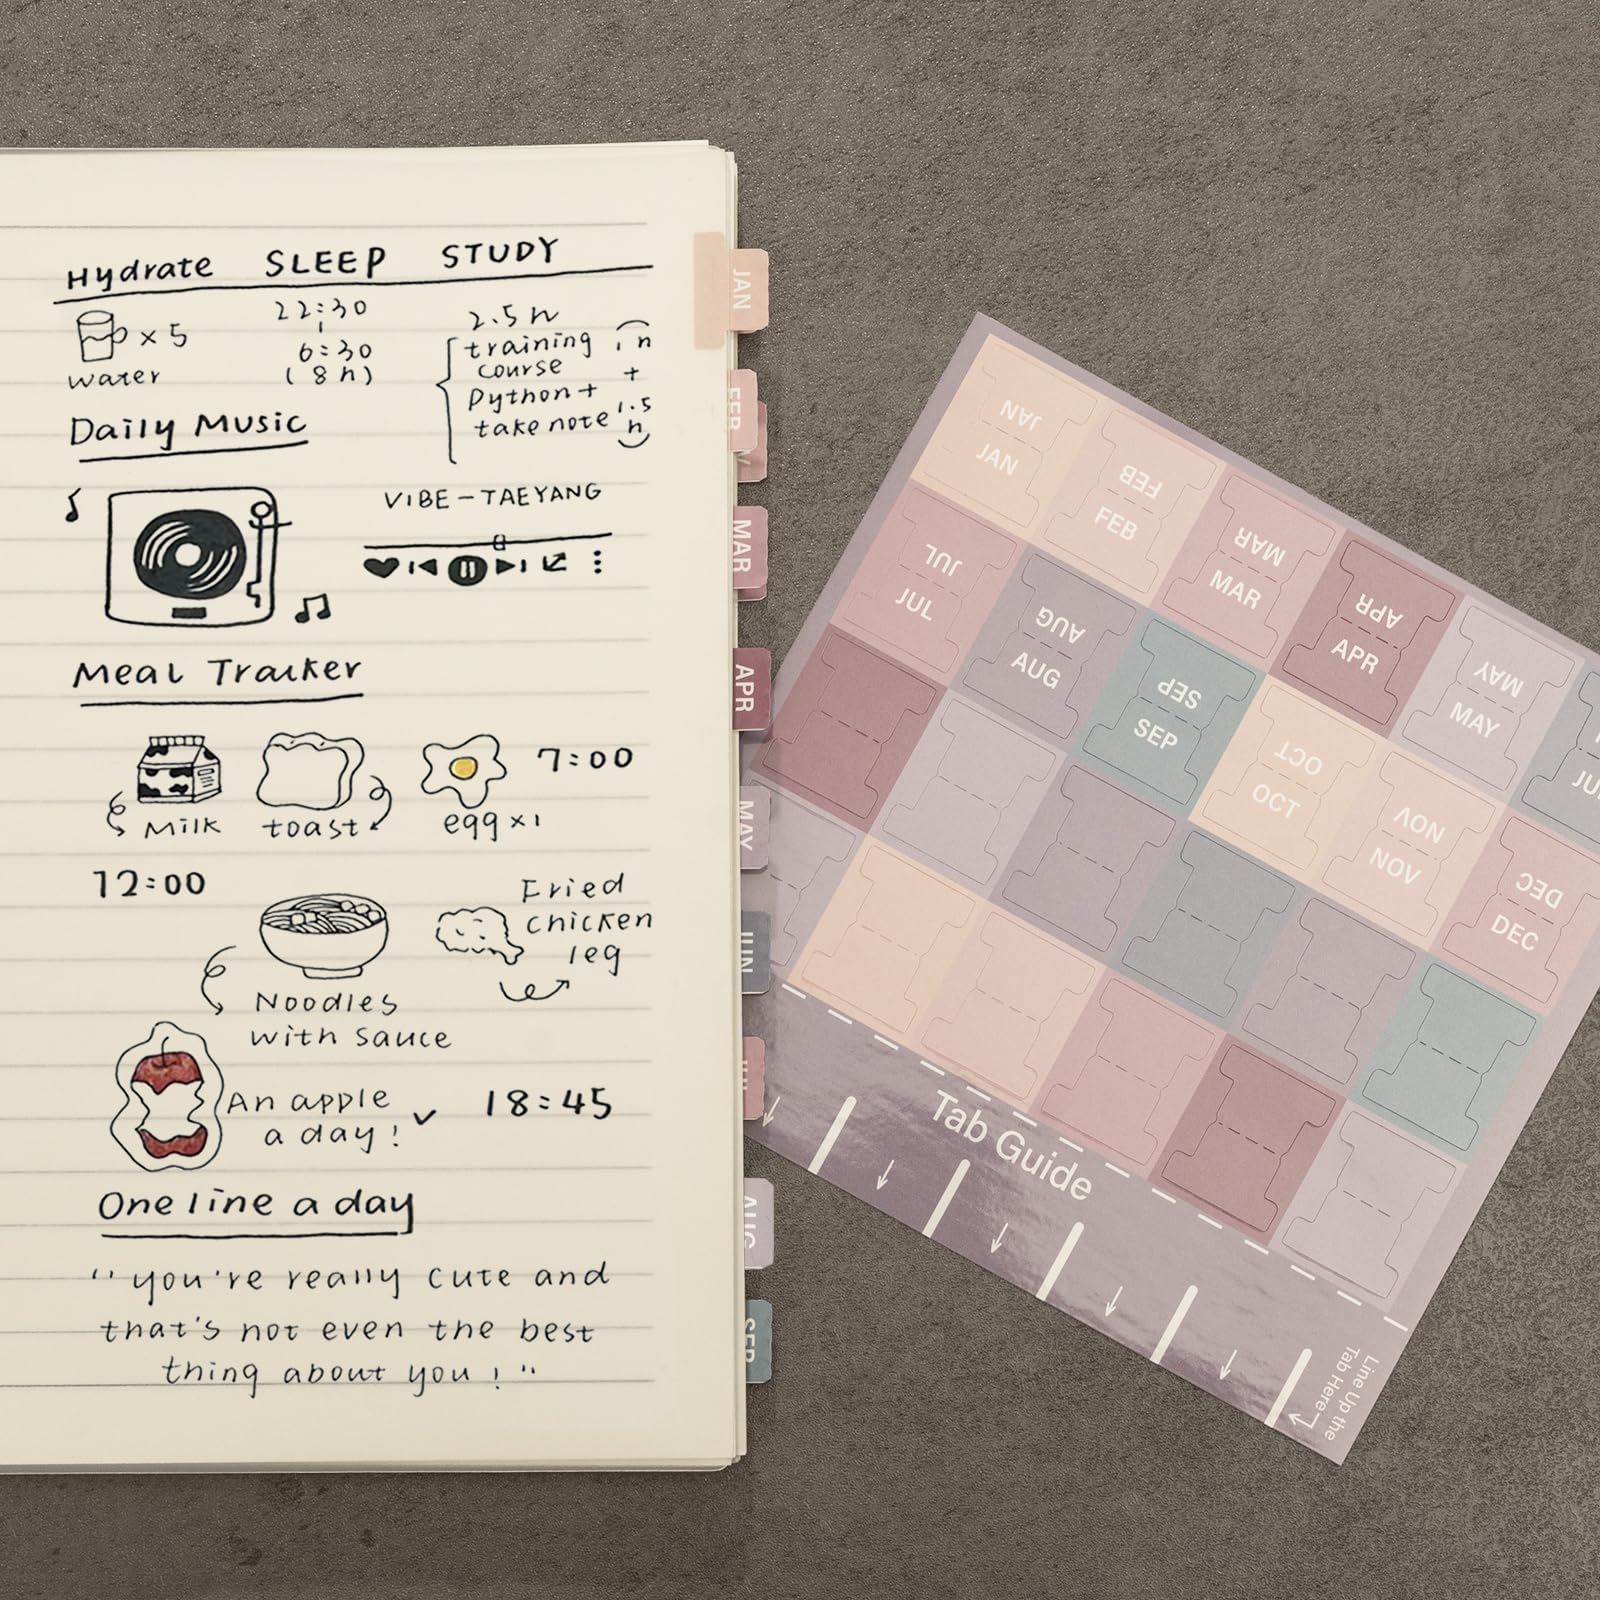 Hydrate SLEEP STUDY
x 5
water
22:30
6:30
(8h)
2.5h
training
course
Python +
take note
1h
+
1.5
h
Daily Music
VIBE - TAEYANG
Meal Tracker
Milk
toast
egg x1
7:00
12:00
Noodles
with sauce
Fried
chicken
leg
An apple
a day!
18:45
One line a day
"you're really cute and
that's not even the best
thing about you!"
JAN
FEB
MAR
APR
MAY
JUN
JUL
AUG
SEP
JAN
JAN
FEB
FEB
MAR
MAR
APR
APR
MAY
MAY
JUL
JUL
AUG
AUG
SEP
SEP
OCT
OCT
NOV
NOV
DEC
DEC
Tab Guide
Line Up the
Tab Here